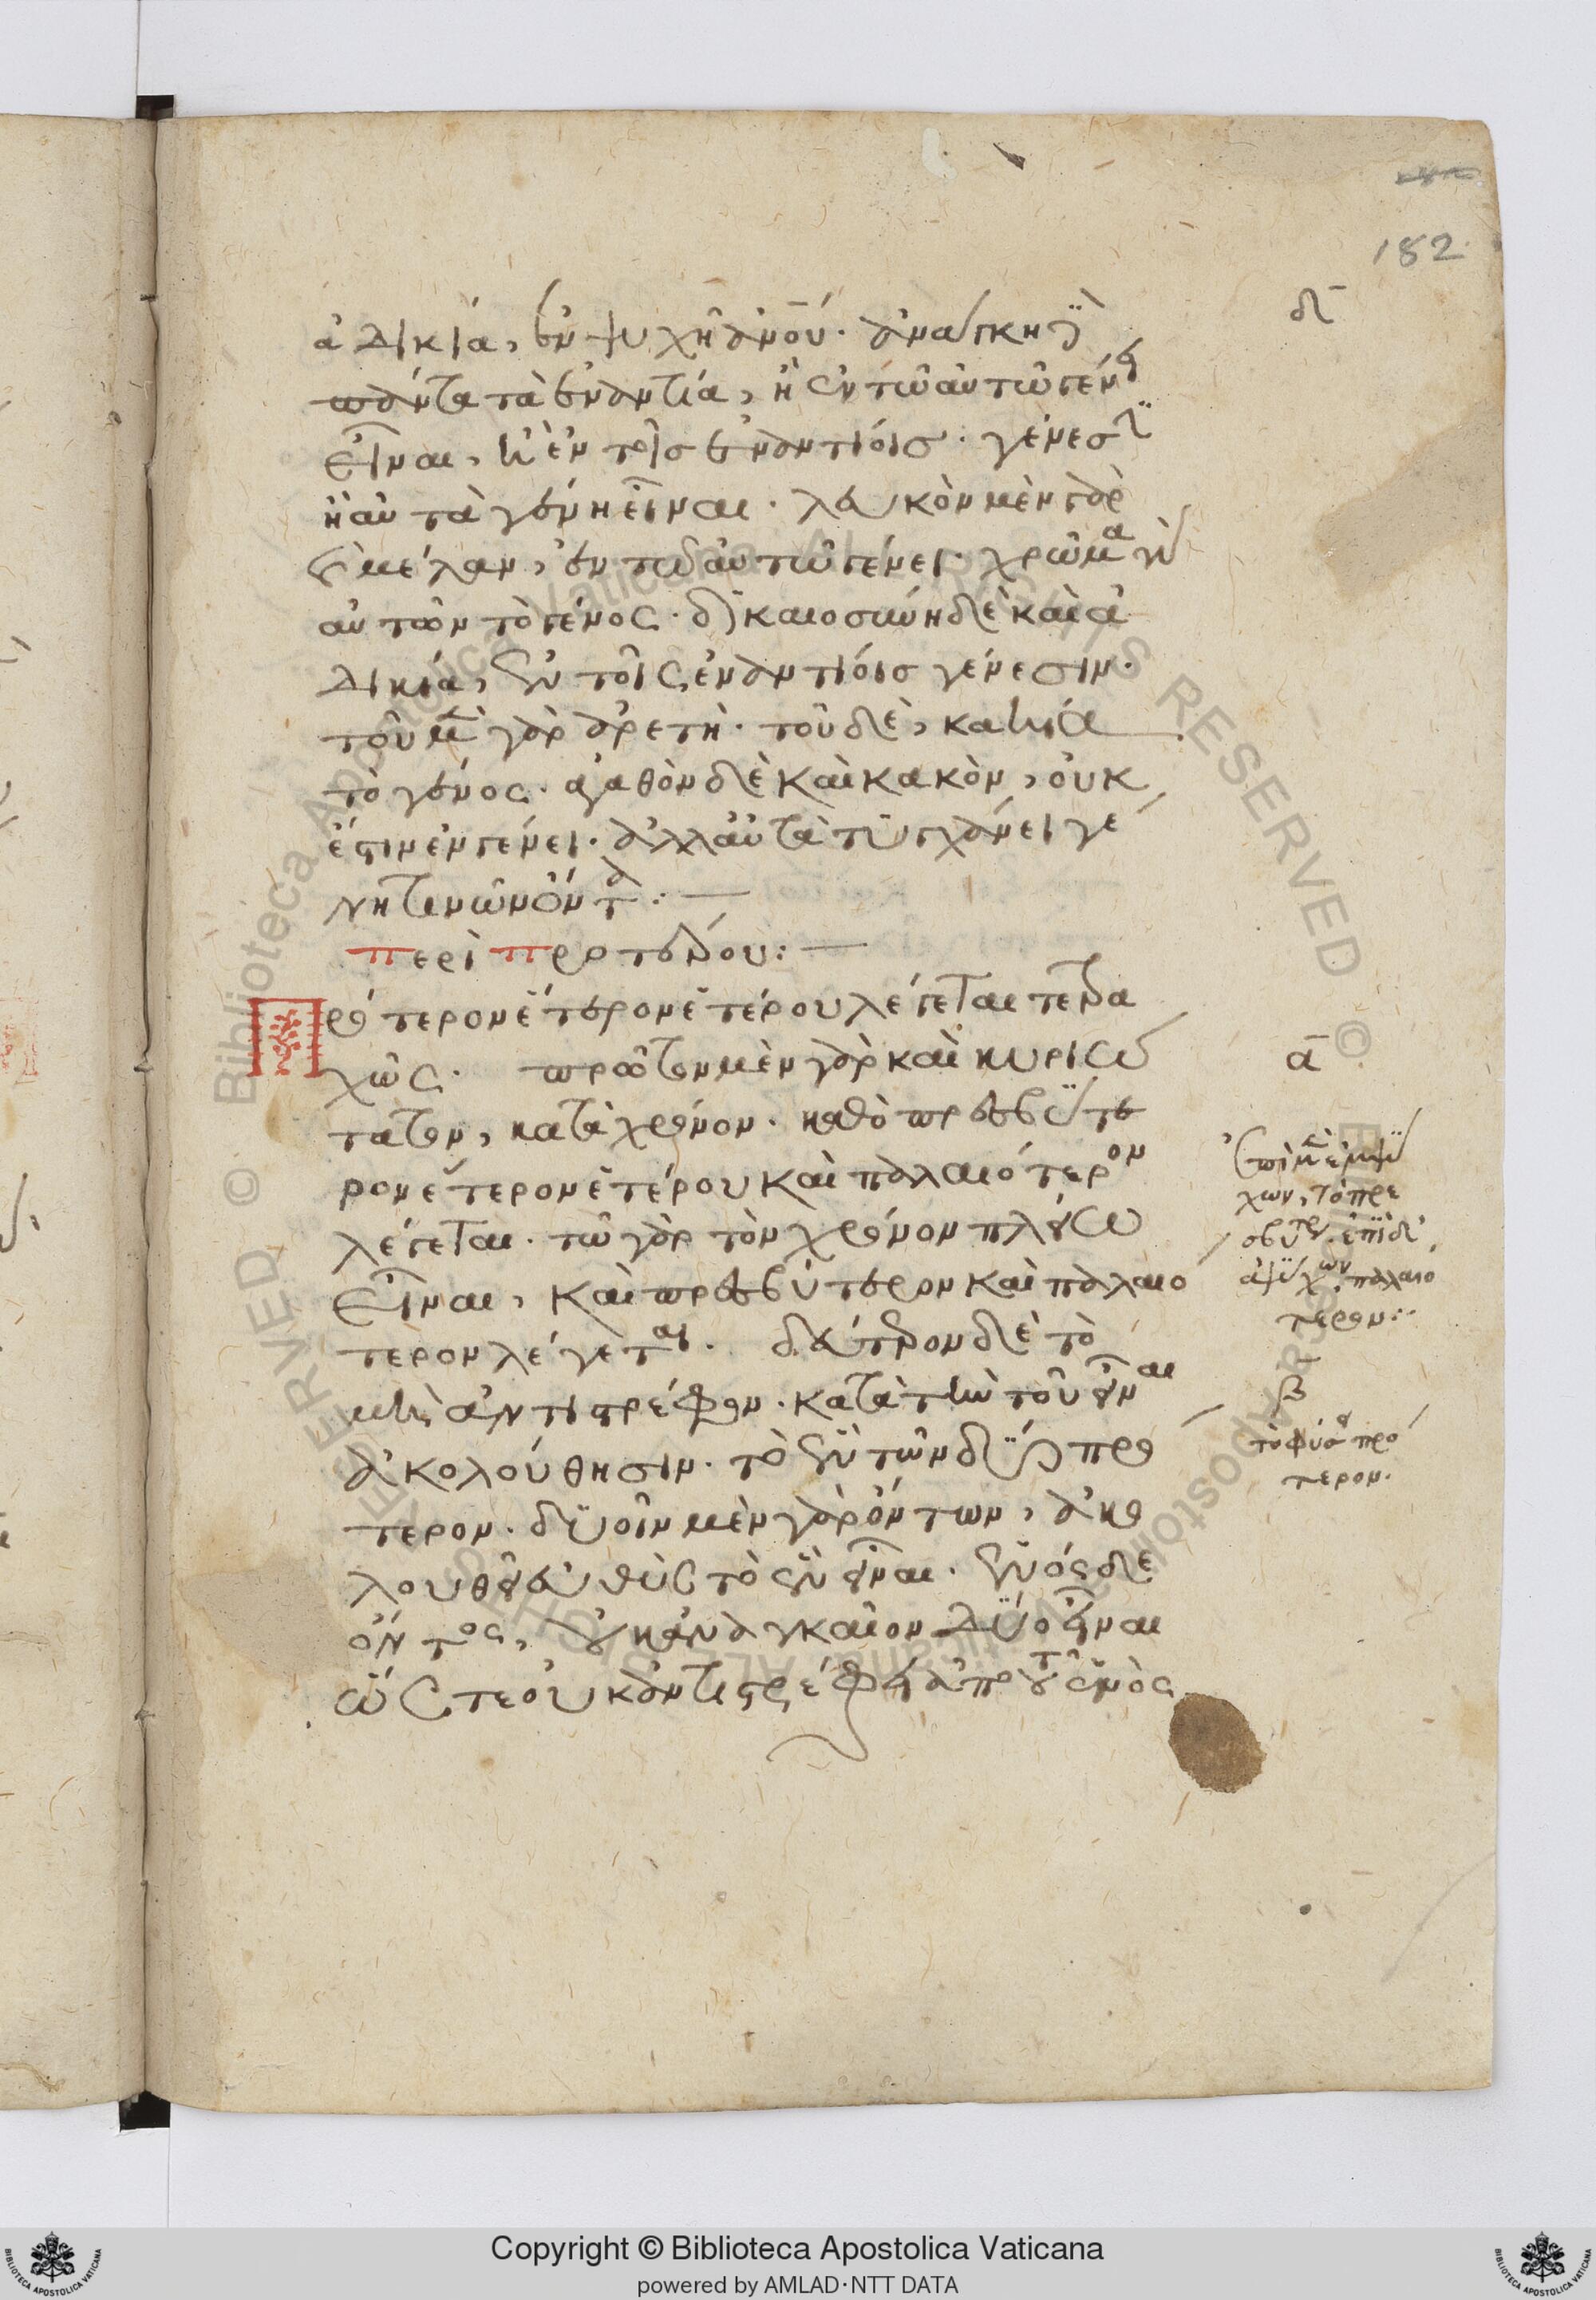 182
δ̅
ἀδικία, ἐν ψυχῆ ἀνου. ἀνάγκη δὲ
πάντα τὰ ἐναντία, ἢ ἐν τῶ αὐτῶ γένει
εἶναι, ἢ ἐν τοῖς ἐναντίοις γένεσιν
ἢ αὐτὰ γένη εἶναι. λευκὸν μὲν γὰρ
καὶ μέλαν, ἐν τῶ αὐτῶ γένει. χρῶμα γὰρ
αὐτῶν τὸ γένος. δικαιοσύνη δὲ καὶ ἀ
δικία, ἐν τοῖς ἐναντίοις γένεσιν.
τοῦ μὲν γὰρ ἀρετὴ. τοῦ δὲ, κακία
τὸ γένος. ἀγαθὸν δὲ καὶ κακὸν, οὐκ
ἔστιν ἐν γένει. ἀλλ' αὐτὰ τυγχάνει γέ
νη τινῶν ὄντα :—
περὶ προτέρου :—
Πρότερον ἕτερον ἑτέρου λέγεται τετρα
χῶς. πρῶτον μὲν γὰρ καὶ κυριώ
α̅
τατον, κατὰ χρόνον. καθὸ πρεσβύτε
ρον ἕτερον ἑτέρου καὶ παλαιότερον
λέγεται. τῶ γὰρ τὸν χρόνον πλείω
εἶναι, καὶ πρεσβύτερον καὶ παλαιό
τερον λέγεται. δεύτερον δὲ τὸ
μὴ ἀντιστρέφον. κατὰ τὴν τοῦ εἶναι
ἀκολούθησιν. τὸ ἓν τῶν δύο πρό
τερον. δυοῖν μὲν γὰρ ὄντων, ἀκο
λουθεῖ εὐθὺς τὸ ἓν εἶναι. ἑνὸς δὲ
ὄντος, οὐκ ἀναγκαῖον δύο εἶναι
ὥστε οὐκ ἀντιστρέφει ἀπὸ τοῦ ἑνὸς
ἐπὶ μὲν ἐμψύ
χων, τὸ πρε
σβύτερον. ἐπὶ δὲ
ἀψύχων, παλαιό
τερον :
β̅
τὸ φύσει πρό
τερον.
Copyright © Biblioteca Apostolica Vaticana
powered by AMLAD·NTT DATA